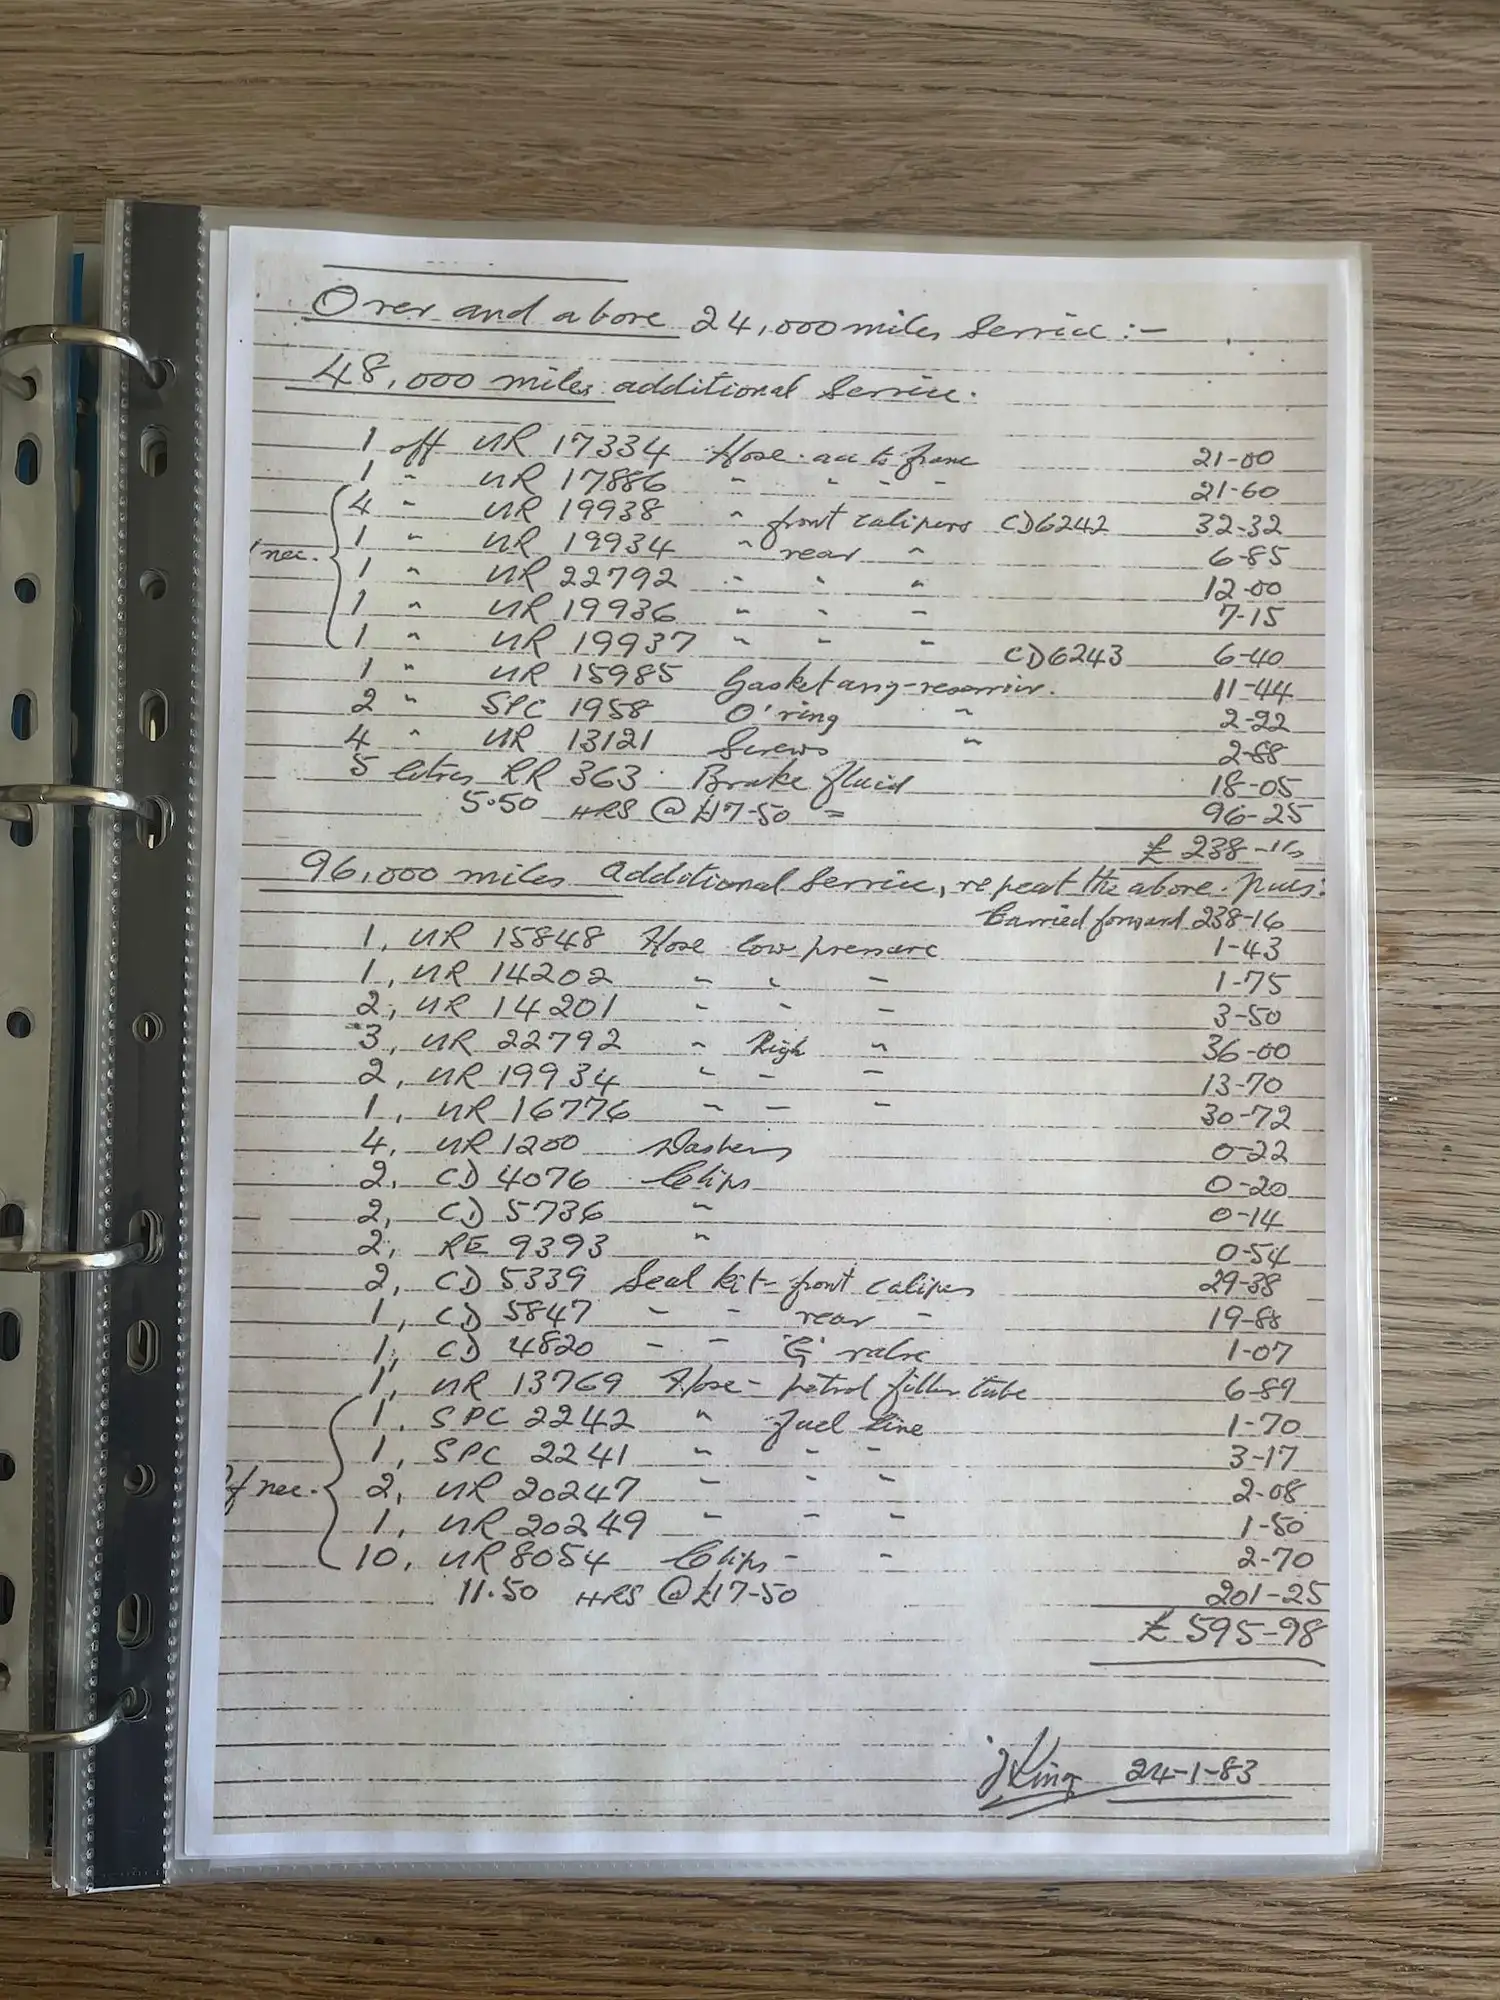 Over and above 24,000 miles Service :-
48,000 miles additional Service.
1 off UR 17334 Hose - acc to frame 21-00
1 " UR 17886 " " " " 21-60
4 " UR 19938 " front calipers CD6242 32-32
1 " UR 19934 " rear " 6-85
nec.
1 " UR 22792 " " " 12-00
1 " UR 19936 " " " 7-15
1 " UR 19937 " " " CD6243 6-40
1 " UR 15985 Gasket - reservoir. 11-44
2 " SPC 1958 O'ring " 2-22
4 " UR 13121 Screws " 2-88
5 litres RR 363 . Brake fluid 18-05
5.50 HRS @ £17-50 = 96-25
£ 238-16
96,000 miles Additional Service, repeat the above. plus:
Carried forward 238-16
1, UR 15848 Hose low pressure 1-43
1, UR 14202 " " " 1-75
2, UR 14201 " " " 3-50
3, UR 22792 " High " 36-00
2, UR 19934 " " " 13-70
1, UR 16776 " " " 30-72
4, UR 1200 Washers 0-22
2, CD 4076 Clips 0-20
2, CD 5736 " 0-14
2, RE 9393 " 0-54
2, CD 5339 Seal kit - front calipers 29-38
1, CD 5847 " " rear " 19-88
1, CD 4820 " " 'G' valve 1-07
1, UR 13769 Hose - petrol filler tube 6-89
1, SPC 2242 " fuel line 1-70
1, SPC 2241 " " " 3-17
If nec. 2, UR 20247 " " " 2-08
1, UR 20249 " " " 1-50
10, UR 8054 Clips - " 2-70
11.50 HRS @ £17-50 201-25
£ 595-98
J King 24-1-83